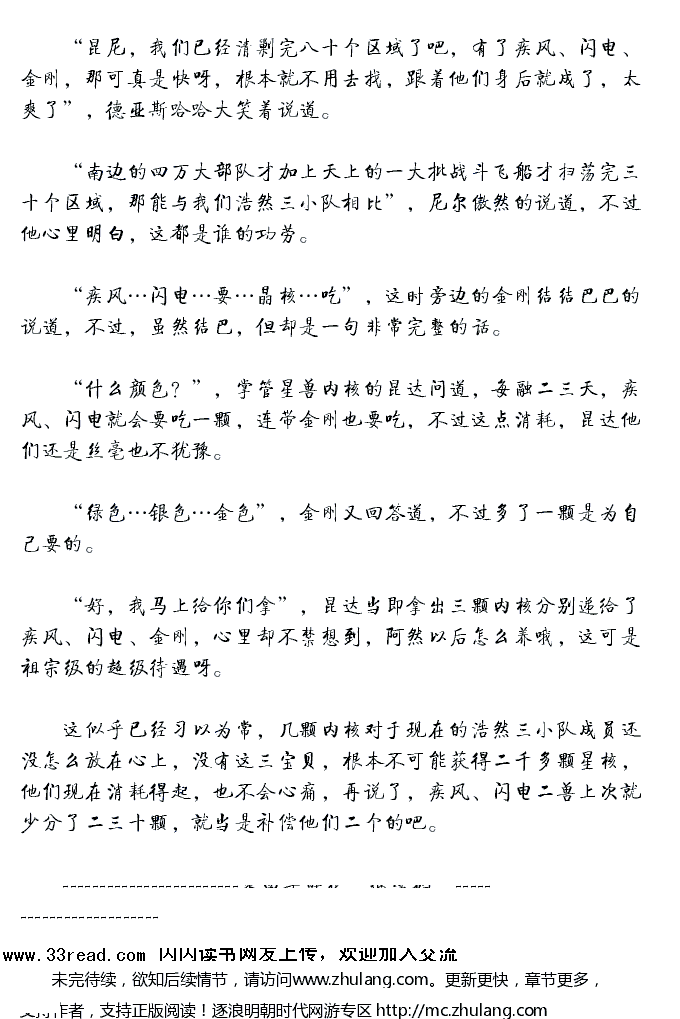 “昆尼，我们已经清剿完八十个区域了吧，有了疾风、闪电、
金刚，那可真是快呀，根本就不用去找，跟着他们身后就成了，太
爽了”，德亚斯哈哈大笑着说道。
“南边的四万大部队才加上天上的一大批战斗飞船才扫荡完三
十个区域，那能与我们浩然三小队相比”，尼尔傲然的说道，不过
他心里明白，这都是谁的功劳。
“疾风…闪电…要…晶核…吃”，这时旁边的金刚结结巴巴的
说道，不过，虽然结巴，但却是一句非常完整的话。
“什么颜色？”，掌管星兽内核的昆达问道，每融二三天，疾
风、闪电就会要吃一颗，连带金刚也要吃，不过这点消耗，昆达他
们还是丝毫也不犹豫。
“绿色…银色…金色”，金刚又回答道，不过多了一颗是为自
己要的。
“好，我马上给你们拿”，昆达当即拿出三颗内核分别递给了
疾风、闪电、金刚，心里却不禁想到，阿然以后怎么养哦，这可是
祖宗级的超级待遇呀。
这似乎已经习以为常，几颗内核对于现在的浩然三小队成员还
没怎么放在心上，没有这三宝贝，根本不可能获得二千多颗星核，
他们现在消耗得起，也不会心痛，再说了，疾风、闪电二兽上次就
少分了二三十颗，就当是补偿他们二个的吧。
www.33read.com 闪闪读书网友上传，欢迎加入交流
未完待续，欲知后续情节，请访问www.zhulang.com。更新更快，章节更多，
支持作者，支持正版阅读！逐浪明朝时代网游专区 http://mc.zhulang.com